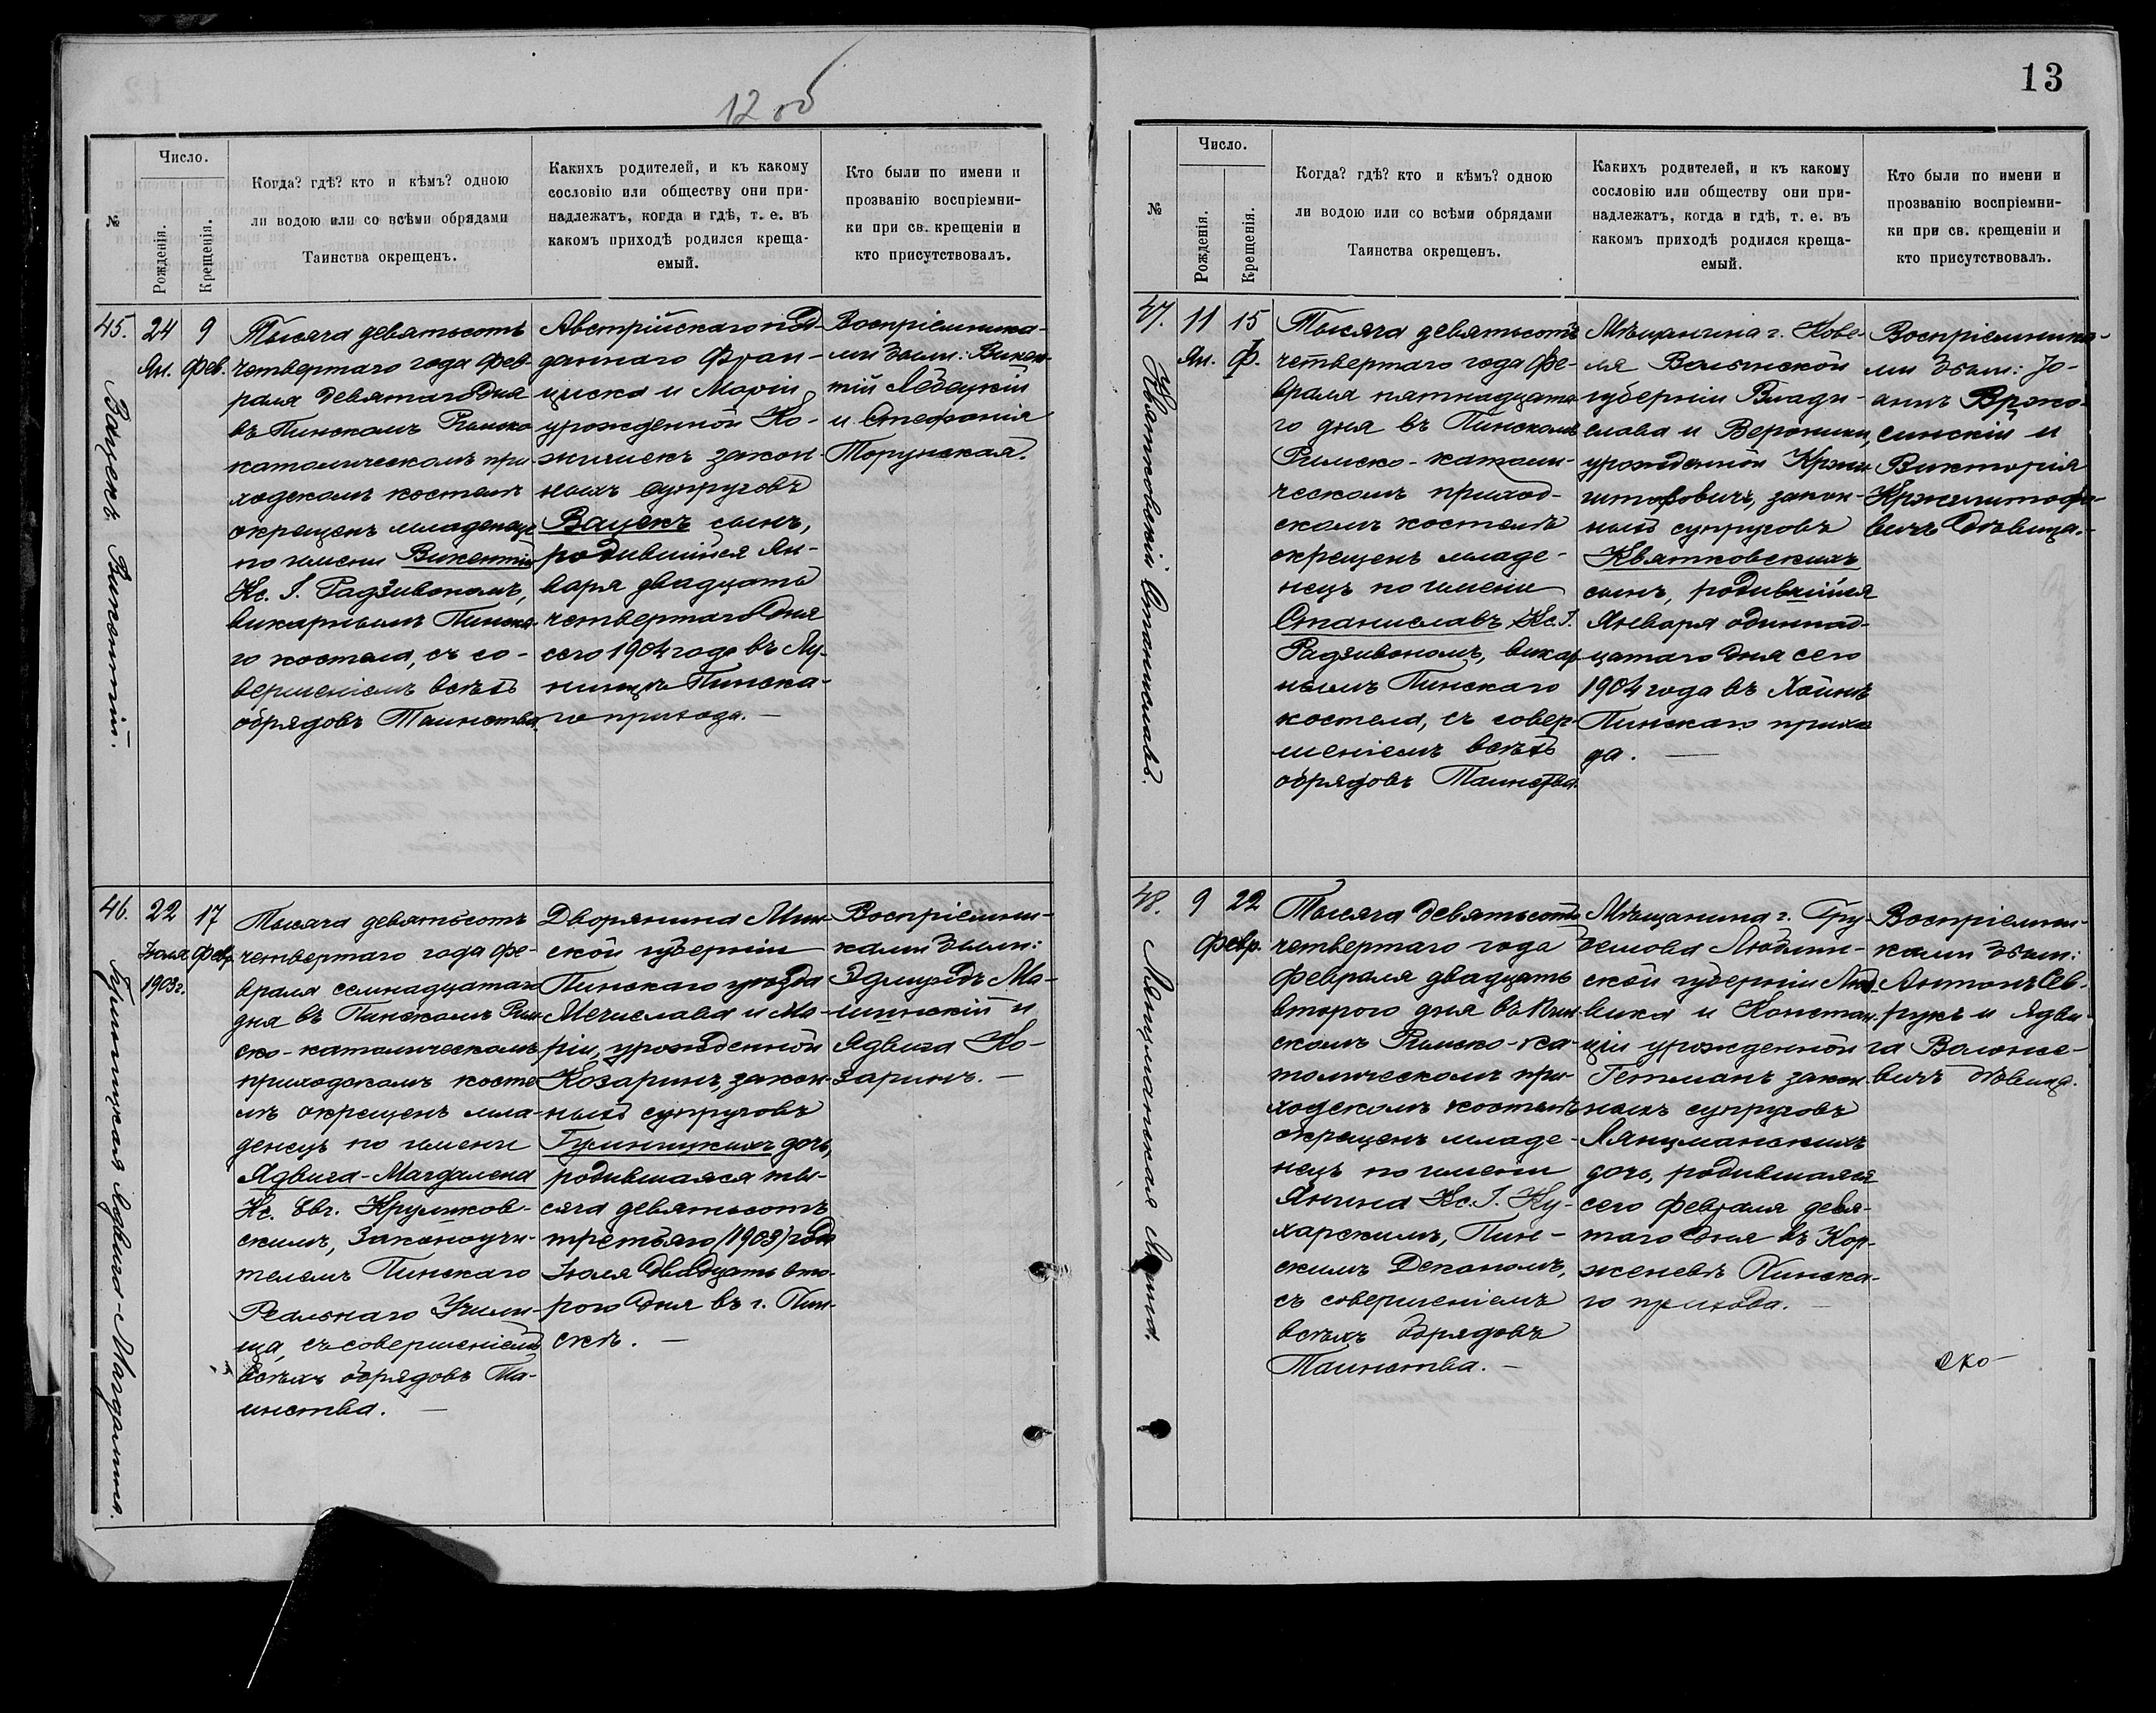 12 об
№
Число.
Рожденія.
Крещенія.
Когда? гдѣ? кто и кѣмъ? одною
ли водою или со всѣми обрядами
Таинства окрещенъ.
Какихъ родителей, и къ какому
сословію или обществу они при-
надлежатъ, когда и гдѣ, т. е. въ
какомъ приходѣ родился креща-
емый.
Кто были по имени и
прозванію воспріемни-
ки при св. крещеніи и
кто присутствовалъ.
45.
Вацекъ Викентій.
24
Ян.
9
Фев.
Тысяча девятьсотъ
четвертаго года Фев-
раля девятаго дня
въ Пинскомъ Римско
католическомъ при-
ходскомъ костелѣ
окрещенъ младенецъ
по имени Викентій
Кс. І. Радзивономъ,
викарнымъ Пинска-
го костела, съ со-
вершеніемъ всѣхъ
обрядовъ Таинства.
Австрійскаго под-
даннаго Фран-
циска и Маріи
урожденной Ко-
жичекъ закон-
ныхъ супруговъ
Вацекъ сынъ,
родившійся Ян-
варя двадцать
четвертаго дня
сего 1904 года въ Лу-
нинцѣ Пинска-
го прихода. —
Воспріемника-
ми были: Викен-
тій Лебецкій
и Стефанія
Торунская.
46.
Гулиницкая Ядвига-Магдалина.
22
Іюля
1903 г.
17
Февр.
Тысяча девятьсотъ
четвертаго года Фе-
враля семнадцатаго
дня въ Пинскомъ Рим-
ско-католическомъ
приходскомъ косте-
лѣ окрещенъ мла-
денецъ по имени
Ядвига-Магдалена
Кс. Евг. Крулıков-
скимъ, Законоучи-
телемъ Пинскаго
Реальнаго Учили-
ща, съ совершеніемъ
всѣхъ обрядовъ Та-
инства. —
Дворянина Мин-
ской губерніи
Пинскаго уѣзда
Мечислава и Ма-
ріи, урожденной
Козаринъ, закон-
ныхъ супруговъ
Гулиницкихъ дочь,
родившаяся ты-
сяча девятьсотъ
третьяго (1903) года
Іюля двадцать вто-
рого дня въ г. Пин-
скѣ. —
Воспріемни-
ками были:
Эдмундъ Ма-
шинскій и
Ядвига Ко-
заринъ. —
13
№
Число.
Рожденія.
Крещенія.
Когда? гдѣ? кто и кѣмъ? одною
ли водою или со всѣми обрядами
Таинства окрещенъ.
Какихъ родителей, и къ какому
сословію или обществу они при-
надлежатъ, когда и гдѣ, т. е. въ
какомъ приходѣ родился креща-
емый.
Кто были по имени и
прозванію воспріемни-
ки при св. крещеніи и
кто присутствовалъ.
47.
Квятковскій Станиславъ.
11
Ян.
15
Ф.
Тысяча девятьсотъ
четвертаго года Фе-
враля пятнадцата-
го дня въ Пинскомъ
Римско-католи-
ческомъ приход-
скомъ костелѣ
окрещенъ младе-
нецъ по имени
Станиславъ Кс. І.
Радзивономъ, викар-
нымъ Пинскаго
костела, съ совер-
шеніемъ всѣхъ
обрядовъ Таинства.
Мѣщанина г. Кове-
ля Волынской
губерніи Влади-
слава и Вероники,
урожденной Кржи-
штофовичъ, закон-
ныхъ супруговъ
Квятковскихъ
сынъ, родившійся
Января одиннад-
цатаго дня сего
1904 года въ Хойнѣ
Пинскаго прихо-
да. —
Воспріемника-
ми были: Іо-
аннъ Вржо-
синскій и
Викторія
Кржиштофо-
вичъ дѣвица. —
48.
Лянцманьская Янина.
9
22
Февр.
Тысяча девятьсотъ
четвертаго года
Февраля двадцать
второго дня въ Пин-
скомъ Римско-ка-
толическомъ при-
ходскомъ костелѣ
окрещенъ младе-
нецъ по имени
Янина Кс. І. Ку-
харскимъ, Пин-
скимъ Деканомъ,
съ совершеніемъ
всѣхъ обрядовъ
Таинства. —
Мѣщанина г. Гру-
бешова Люблин-
ской губерніи Люд-
вика и Констан-
ціи урожденной
Гетманъ закон-
ныхъ супруговъ
Лянцманьскихъ
дочь, родившаяся
сего Февраля девя-
таго дня въ Кор-
женевѣ Пинска-
го прихода. —
Воспріемни-
ками были:
Антонъ Сев-
рукъ и Ядви-
га Волонсе-
вичъ дѣвица.
ско-